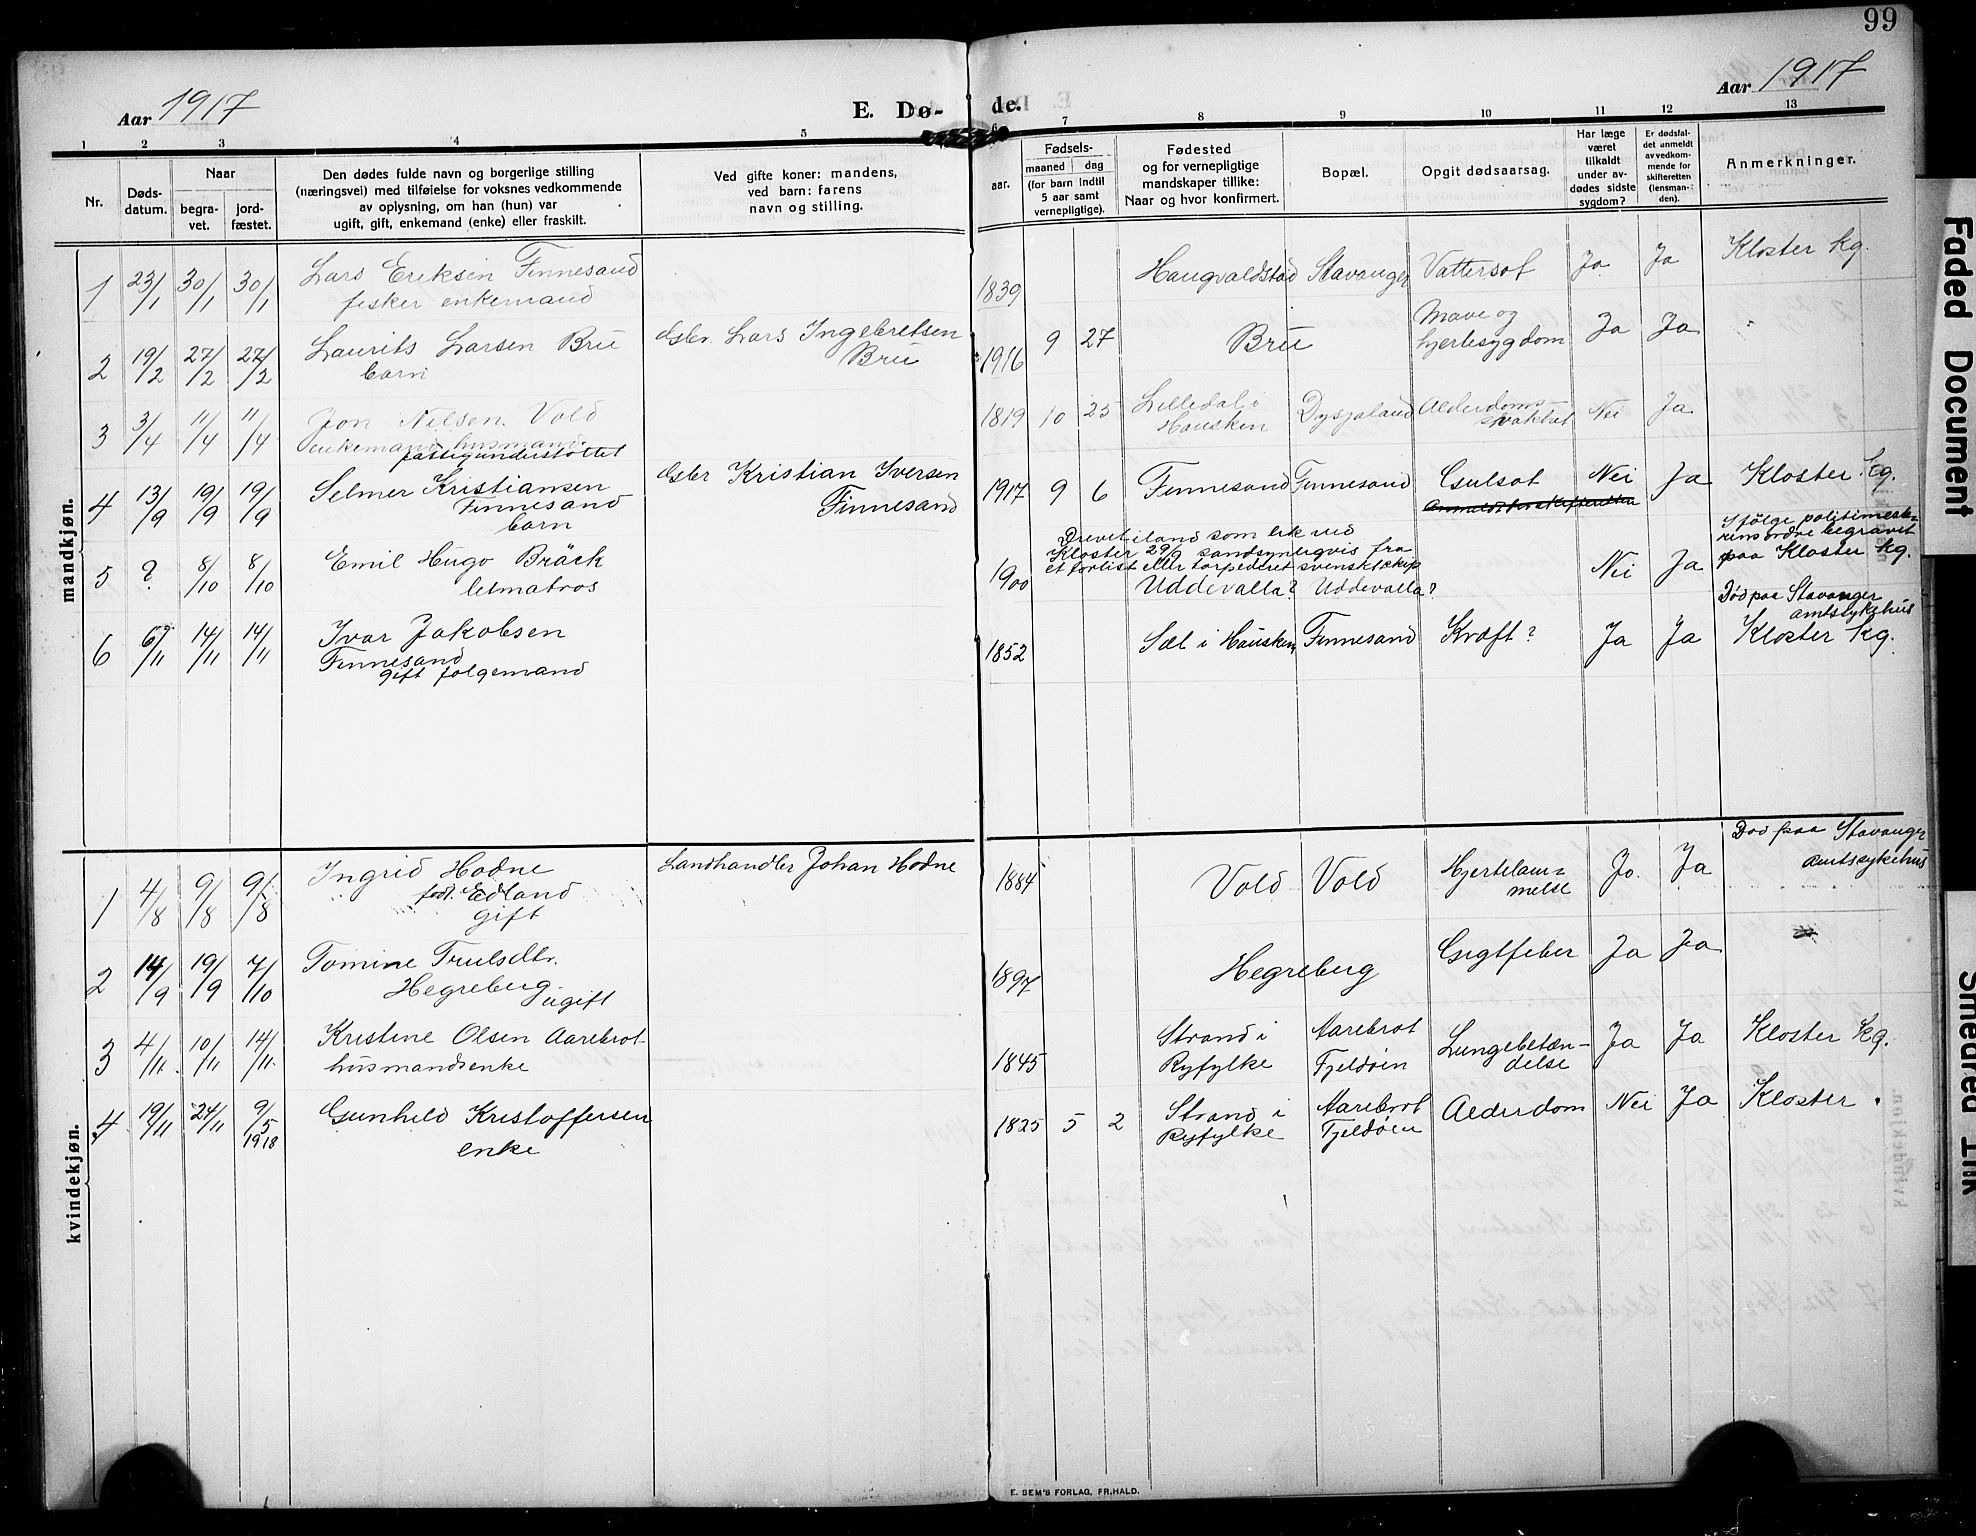 99
Aar 1917
E. Dø-
de.
Aar 1917
1 2 3 4 5 6 7 8 9 10 11 12 13
Nr.
Døds-
datum.
Naar
begra-
vet.
jord-
fæstet.
Den dødes fulde navn og borgerlige stilling
(næringsvei) med tilføielse for voksnes vedkommende
av oplysning, om han (hun) var
ugift, gift, enkemand (enke) eller fraskilt.
Ved gifte koner: mandens,
ved barn: farens
navn og stilling.
aar.
Fødsels-
maaned dag
(for barn indtil
5 aar samt
vernepligtige).
Fødested
og for vernepligtige
mandskaper tillike:
Naar og hvor konfirmert.
Bopæl.
Opgit dødsaarsag.
Har læge
været
tilkaldt
under av-
dødes sidste
sygdom?
Er dødsfal-
det anmeldt
av vedkom-
mende for
skifteretten
(lensman-
den).
Anmerkninger.
mandkjøn.
1 23/1 30/1 30/1 Lars Eriksen Finnesand
fisker enkemand
1839 Haugvaldstad Stavanger Vattersot Ja Ja Kloster kg.
2 19/2 27/2 27/2 Laurits Larsen Bru
barn
Gbr. Lars Ingebretsen
Bru
1916 9 27 Bru
Mave og
hjertesygdom
Ja Ja
3 3/4 11/4 11/4 Jon Nilsen Vold
enkemand husmand
fattigunderstøttet
1819 10 25 Lilledal i
Hausken
Dysjaland Alderdoms-
svakhet
Nei Ja
4 13/9 19/9 19/9 Selmer Kristiansen
Finnesand
barn
Gbr Kristian Iversen
Finnesand
1917 9 6 Finnesand Finnesand Gulsot Nei Ja Kloster kg.
5 ? 8/10 8/10 Emil Hugo Bräck
letmatros
1900
Drevet iland som lik ved
Kloster 29/9 sandsynligvis fra
et forlist eller torpederet svensk skip
Uddevalla? Uddevalla?
Nei Ja
Ifølge politimeste-
rens ordre begravet
paa Kloster kg.
6 6/11 14/11 14/11 Ivar Jakobsen
Finnesand
gift folgemand
1852 Sæl i Hausken Finnesand Kræft? Ja Ja
Død paa Stavanger
amtssykehus
Kloster kg.
kvindekjøn.
1 4/8 9/8 9/8 Ingrid Hodne
født Edland
gift
Landhandler Johan Hodne
1884 Vold Vold Hjertelam-
melse
Ja Ja
Død paa Stavanger
Amtssykehus
2 14/9 19/9 7/10 Tomine Trulsdtr.
Hegreberg
ugift
1897 Hegreberg Gigtfeber Ja Ja
3 4/11 10/11 14/11 Kristine Olsen Aarebrot
husmandsenke
1845 Strand i
Ryfylke
Aarebrot
Fjeldøen
Lungebetæn-
delse
Ja Ja Kloster kg.
4 19/11 24/11 9/5
1918
Gunhild Kristoffersen
enke
1825 5 2 Strand i
Ryfylke
Aarebrot
Fjeldøen
Alderdom Nei Ja Kloster
E. SEM'S FORLAG, FR.HALD.
Faded Document
Smedred Ink